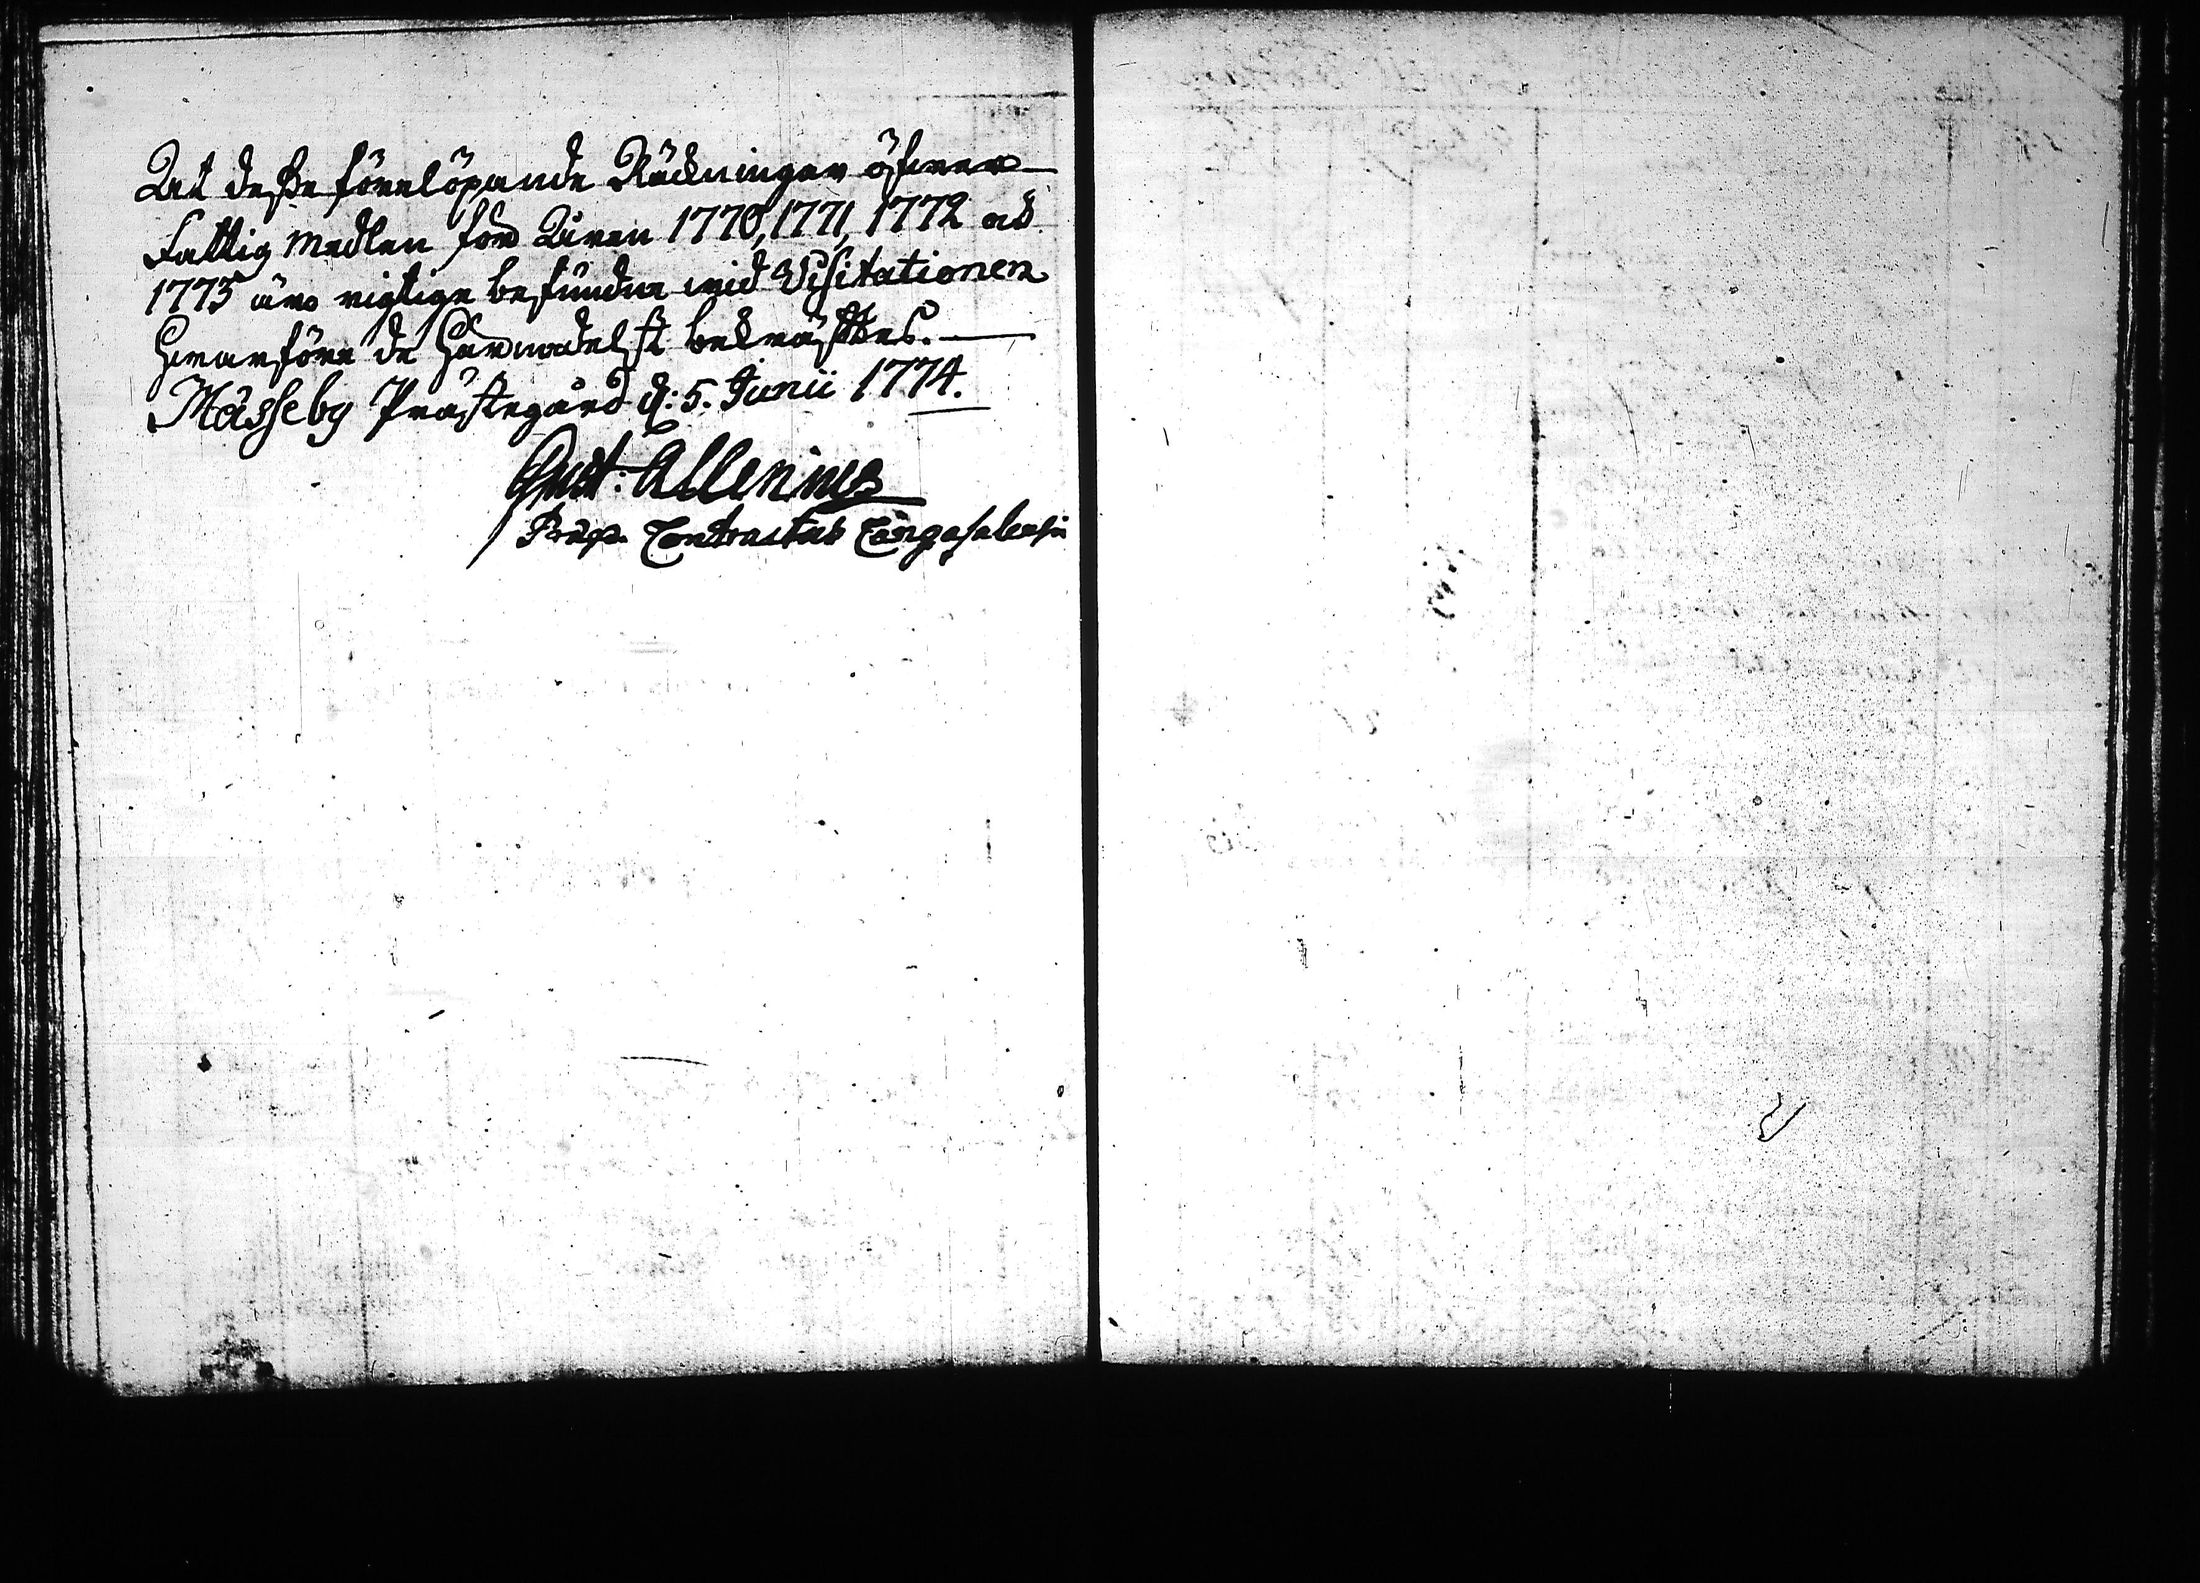 At deße förelöpande Räckningar öfwer
Fattig medlen för åren 1770, 1771, 1772 ock
1773 äro rigtige befundne wid Visitationen
Hwarföre de härmedelst bekräftes.
Måsseby Prästegård d: 5. Junii 1774.
Gust: Allenius
Præp. Contractus Långasalensis